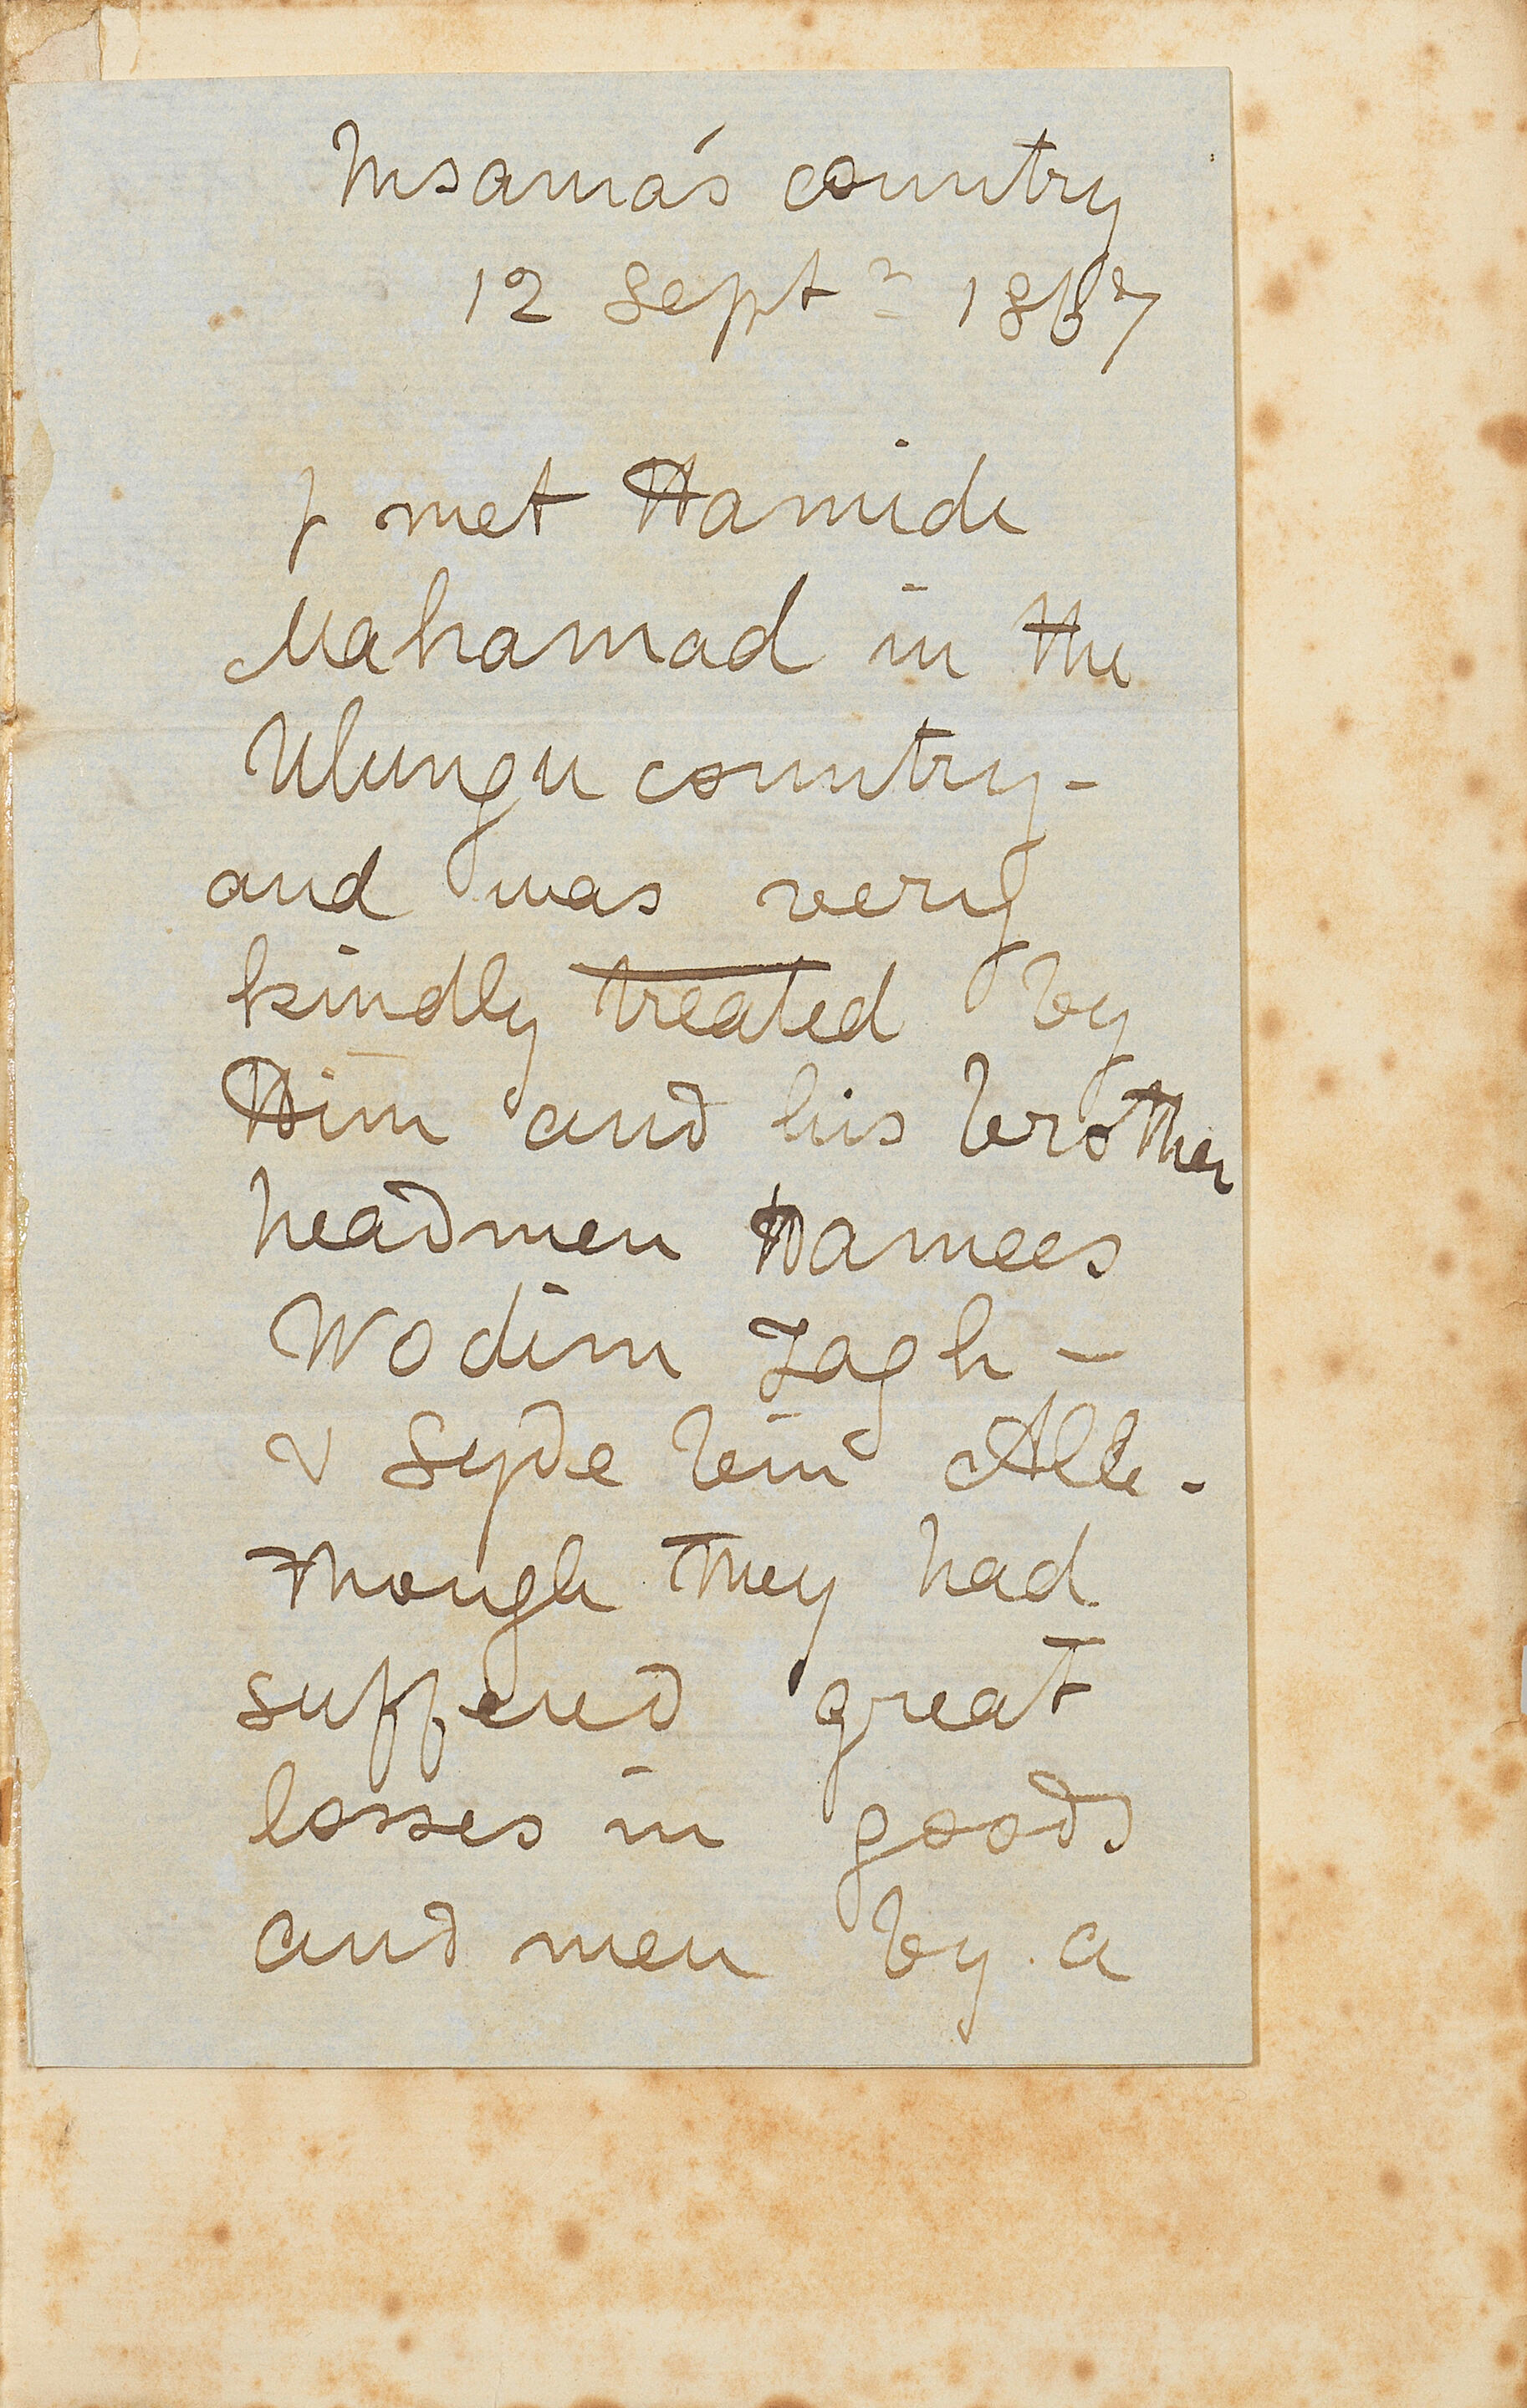 Msama's country
12 Septr 1867
I met Hamide
Mahamad in the
Ulungu country -
and was very
kindly treated by
Him and his brother
headmen Hamees
Wodim Tagh -
& Syde bin Alle -
though they had
suffered great
losses in goods
and men by a